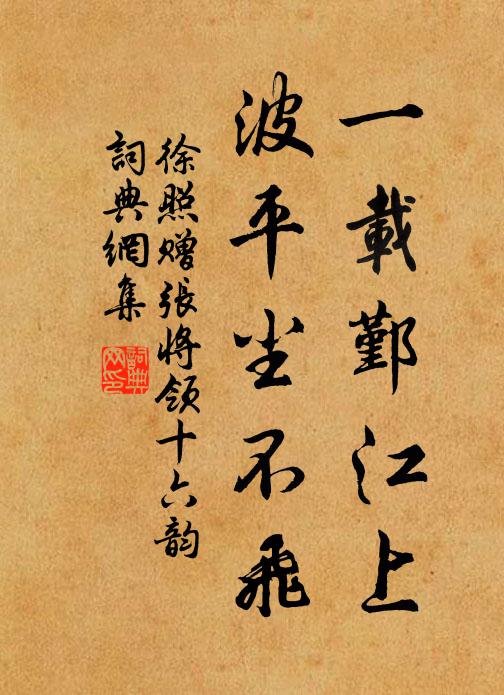 一載鄞江上
波平尘不飛
徐照赠張将领十六韵
詞典網集
詞典網印